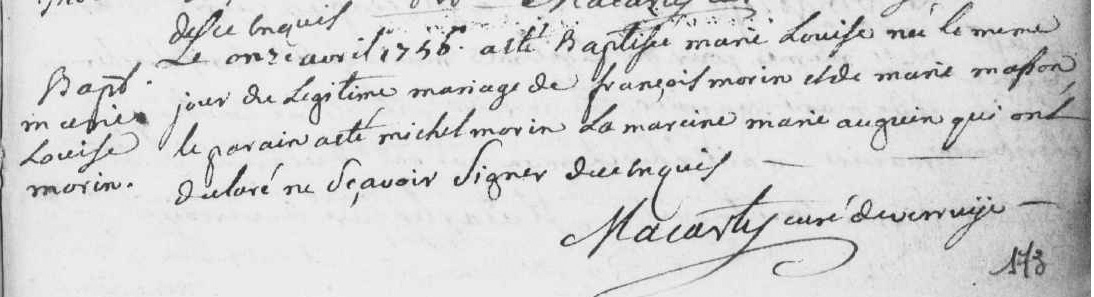 de ce enquis
Le onze avril 1756. a été Baptisée marie Louise née le meme
Bapt.
marie
Louise
morin.
jour du Legitime mariage de françois morin et de marie masson
le parain a été michel morin La mareine marie auguin qui ont
declaré ne sçavoir signer de ce enquis
Macarty curé de verruije
173